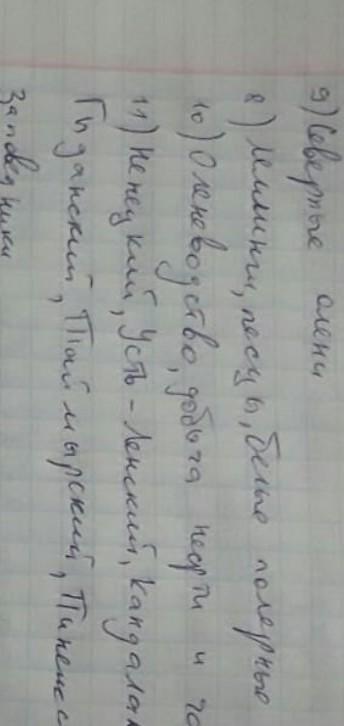 9) Северные олени
8) Лемминги, песцы, белые полерные
10) Оленеводство, добыча нефти и
11) Ненецкий, Усть-Ленский,
Гиданский, Таймырский,
заповедники